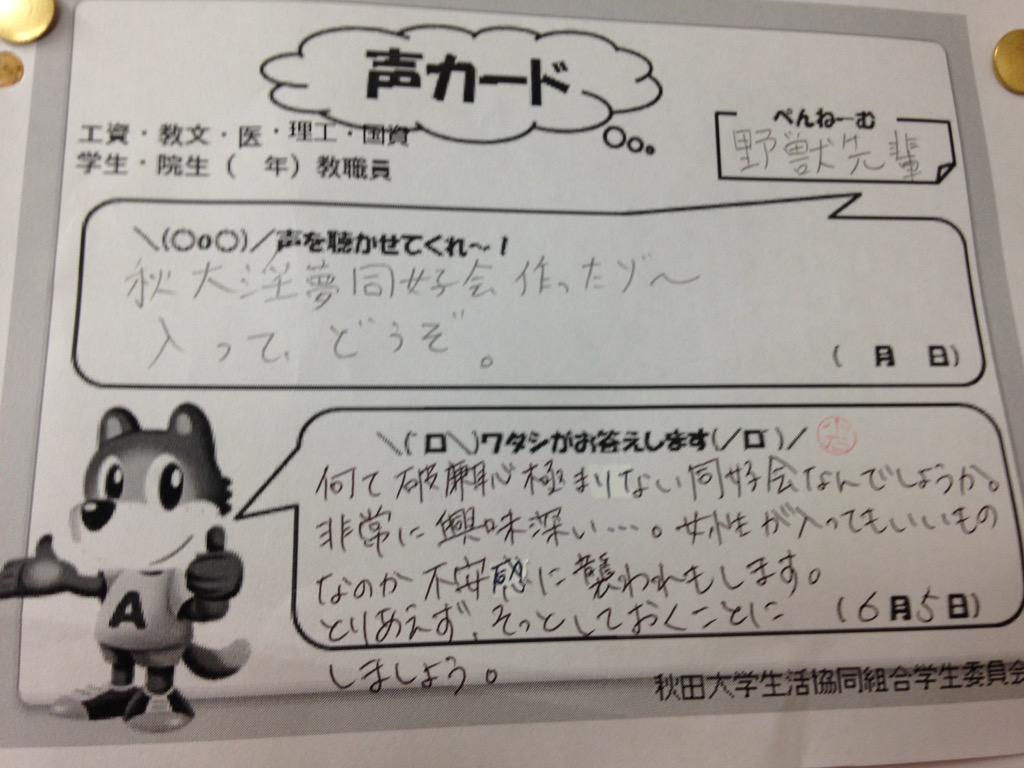 声カード
工資・教文・医・理工・国資
学生・院生（　年）教職員
ぺんねーむ
野獣先輩
＼(〇o〇)／声を聴かせてくれ〜！
秋大淫夢同好会作ったゾ〜
入って、どうぞ。
(　月　日)
＼(ﾟロ＼)ワタシがお答えします(／ロﾟ)／
何て破廉恥極まりない同好会なんでしょうか。
非常に興味深い…。女性が入ってもいいもの
なのか不安感に襲われもします。
とりあえず、そっとしておくことに
(6月5日)
しましょう。
A
秋田大学生活協同組合学生委員会